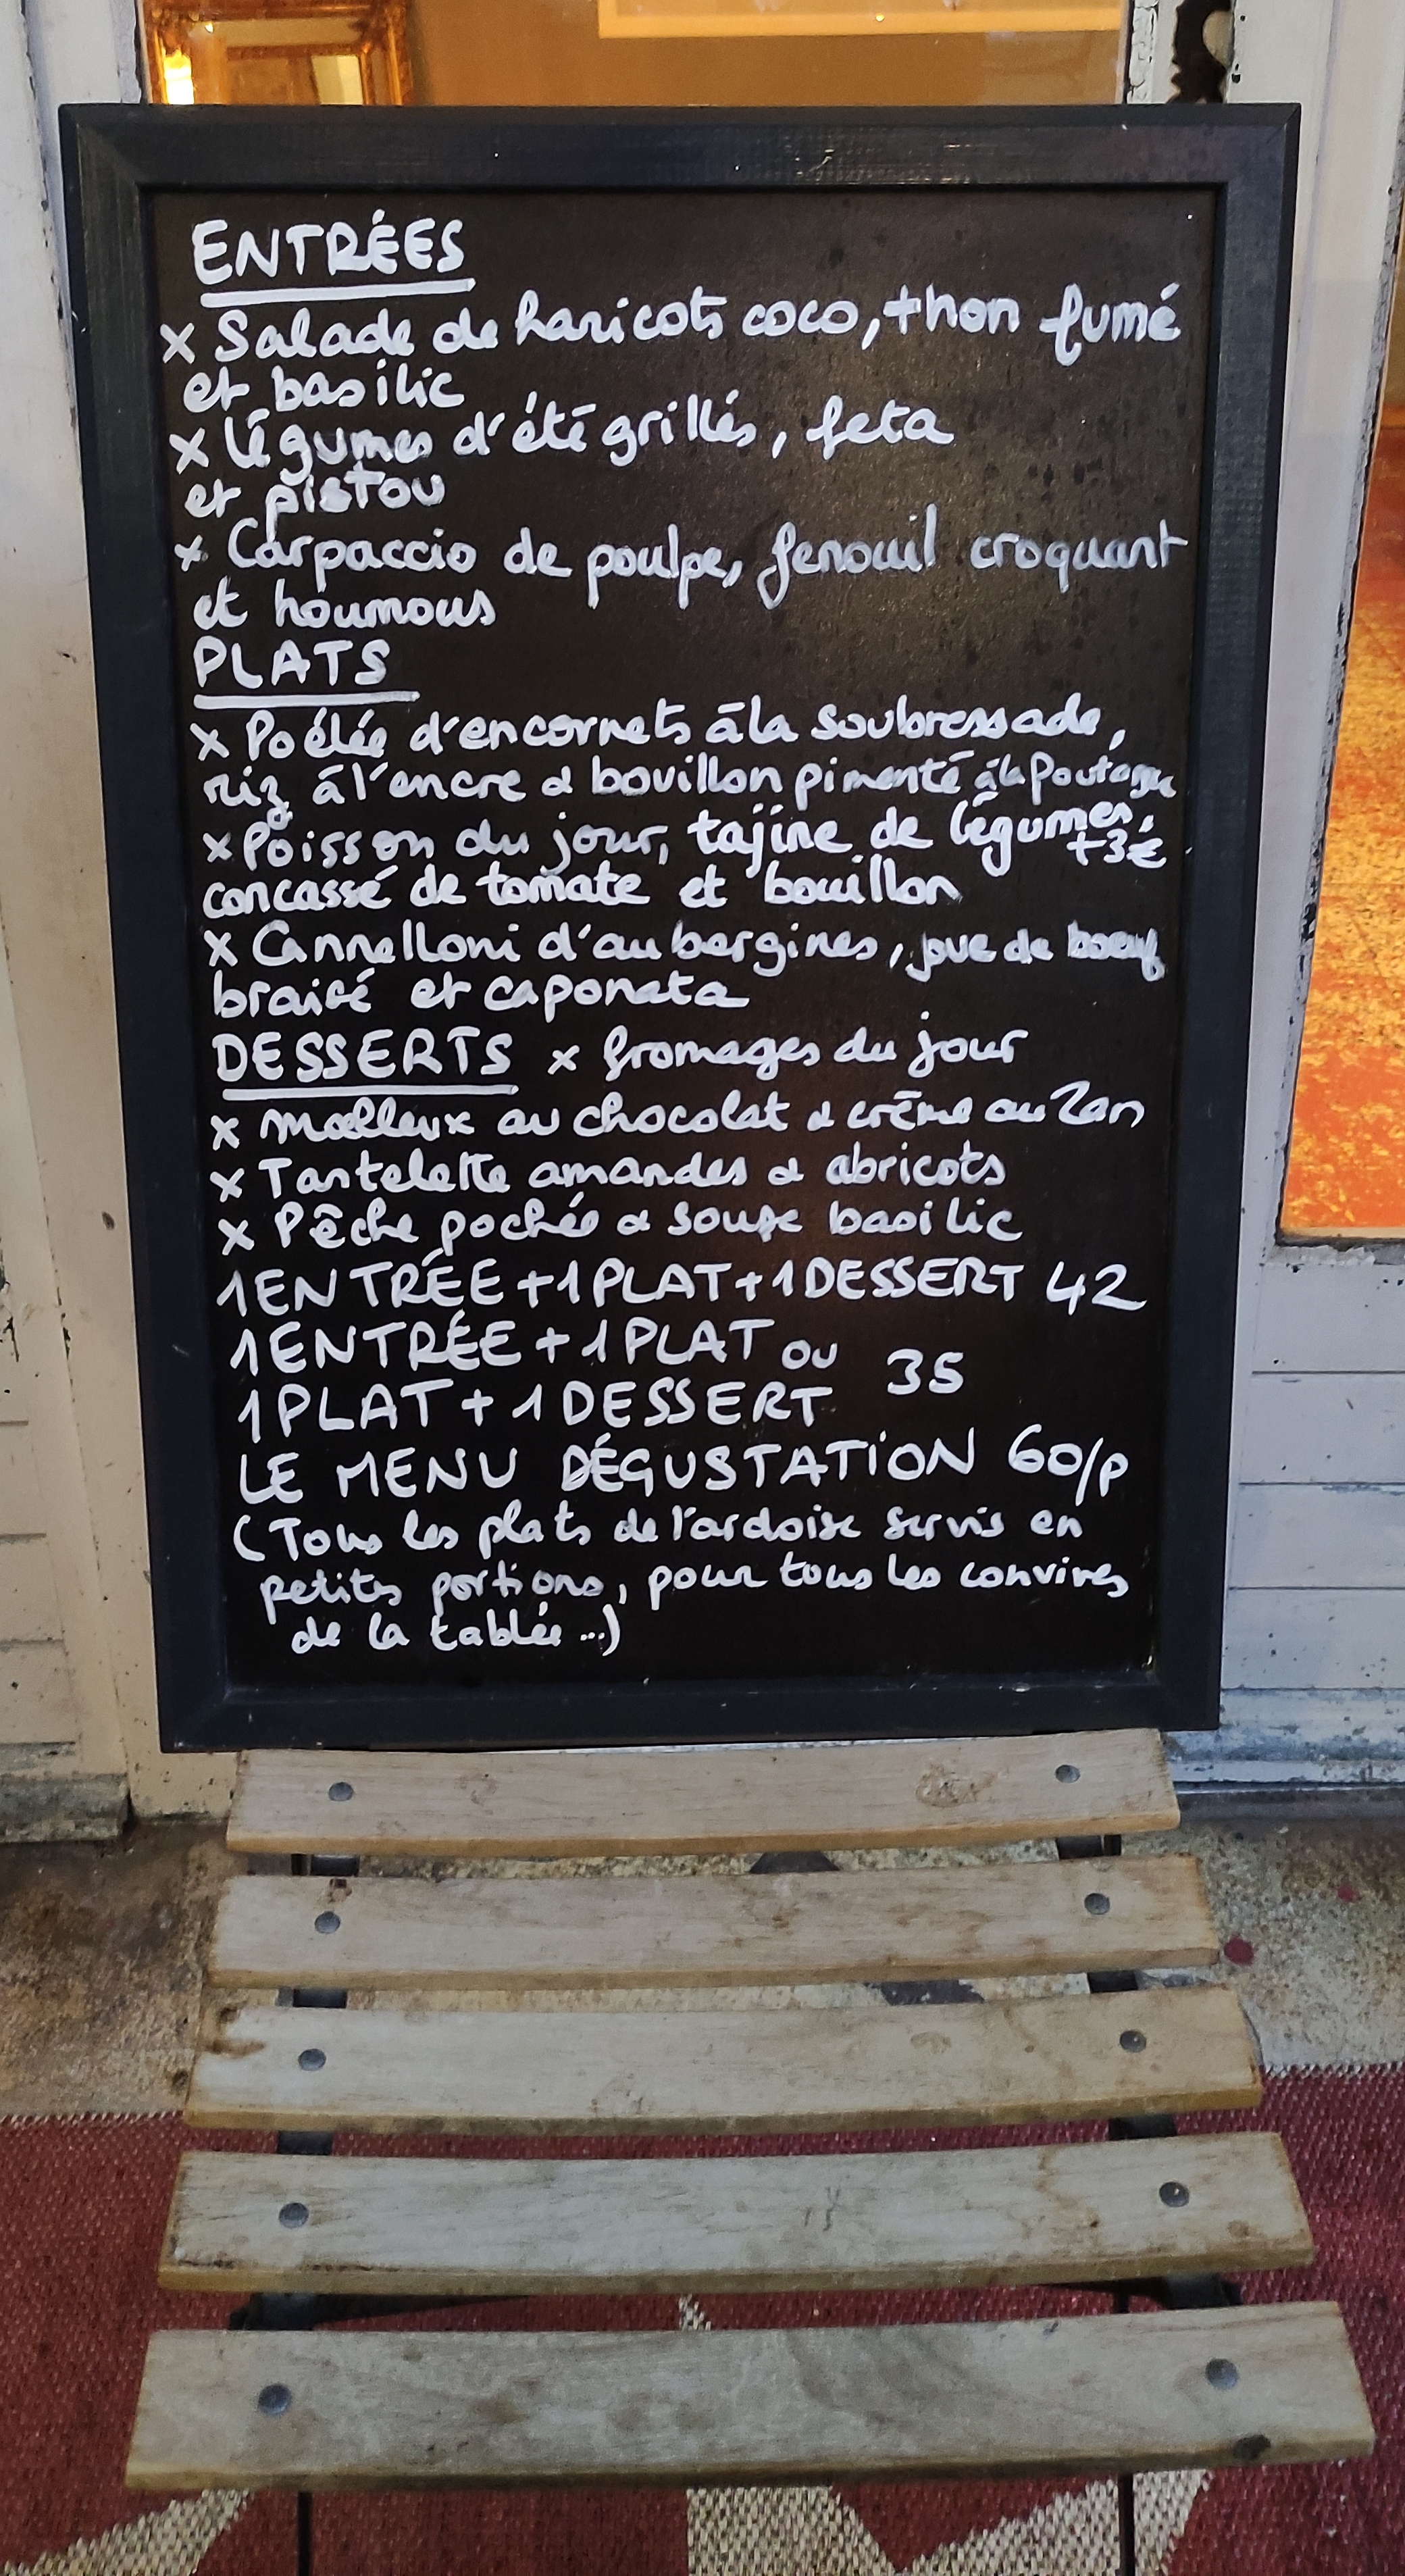 ENTRÉES
x Salade de haricots coco, thon fumé
et basilic
x Légumes d'été grillés, feta
et pistou
x Carpaccio de poulpe, fenouil croquant
et houmous
PLATS
x Poélée d'encornets à la soubressade,
riz à l'encre & bouillon pimenté à la Poutargue
x Poisson du jour, tajine de légumes, +3€
concassé de tomate et bouillon
x Cannelloni d'aubergines, joue de boeuf
braisé et caponata
DESSERTS x fromages du jour
x Moelleux au chocolat & crème au Zan
x Tartelette amandes & abricots
x Pêche pochée & soupe basilic
1 ENTRÉE + 1 PLAT + 1 DESSERT 42
1 ENTRÉE + 1 PLAT ou
35
1 PLAT + 1 DESSERT
LE MENU DÉGUSTATION 60/p
(Tous les plats de l'ardoise servis en
petites portions, pour tous les convives
de la tablée ...)